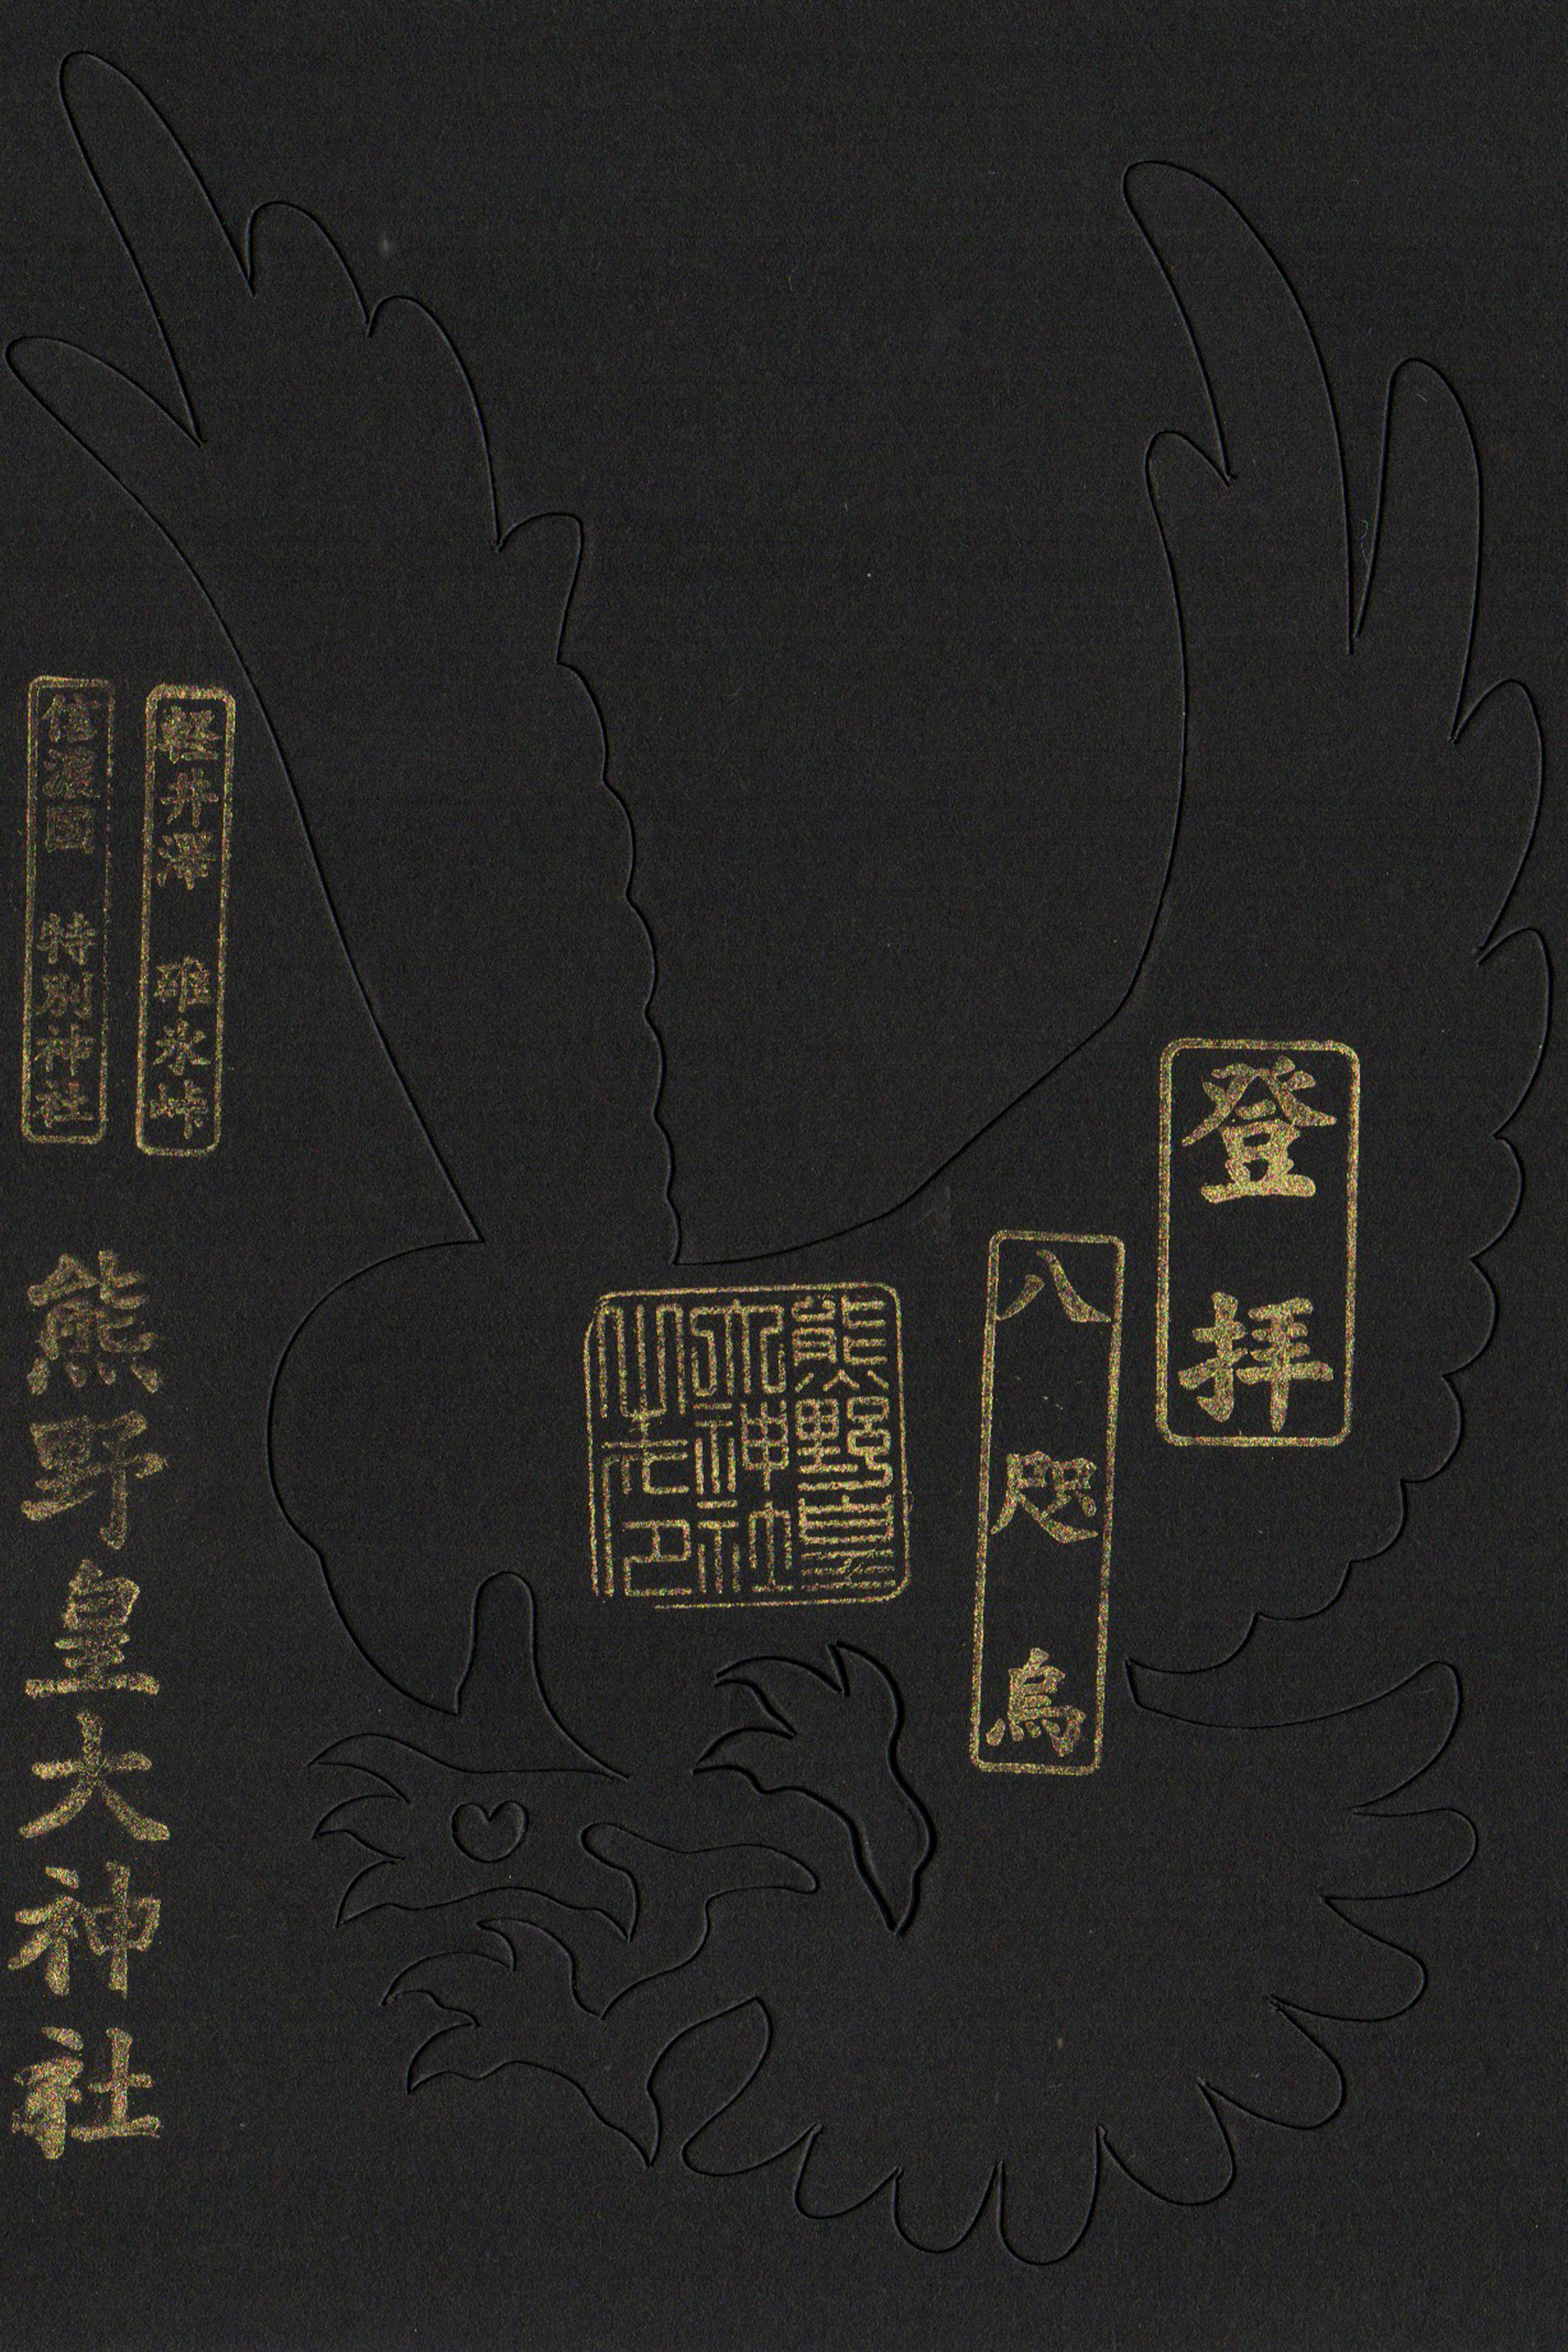 登拝
八咫烏
熊野皇
大神社
軽井澤 碓氷峠
信濃國 特別神社
熊野皇大神社